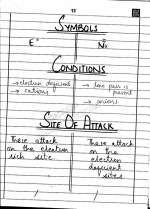 13
SYMBOLS
E⁺ N̈u
CONDITIONS
→ electron deficient → lone pair is
→ cations present
→ anions
SITE OF ATTACK
These attack These attack
on the electron on the
rich site electron
deficient
sites